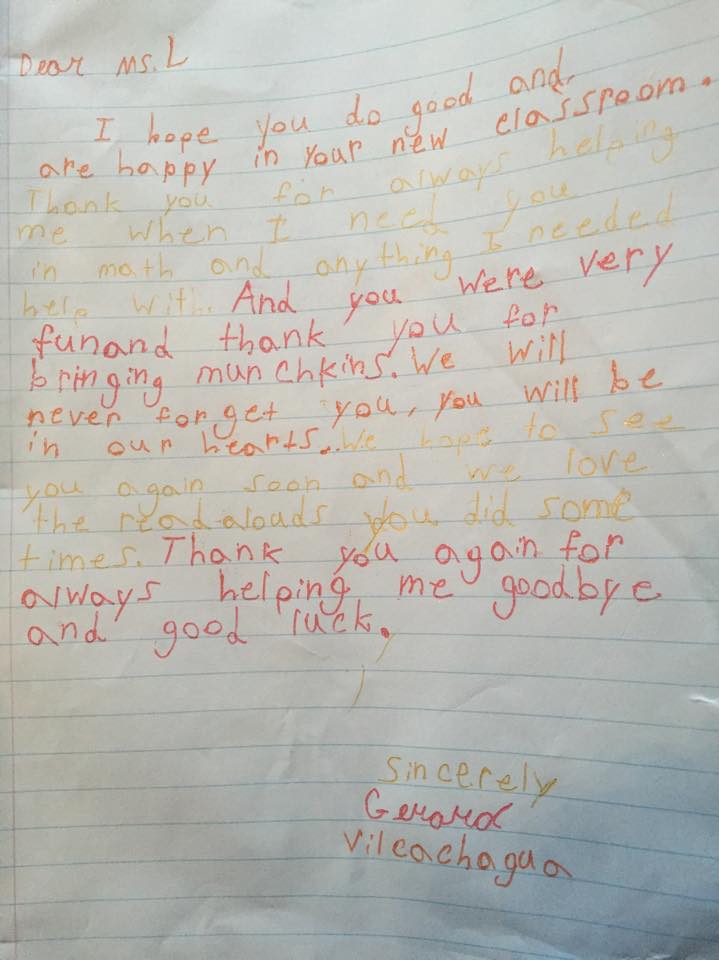 Dear Ms. L
I hope you do good and
are happy in your new classroom.
Thank you for always helping
me when I need you
in math and anything I needed
help with. And you were very
funand thank you for
bringing munchkins. We will
never forget you, you will be
in our hearts... We hope to see
you again soon and we love
the read-alouds you did some
times. Thank you again for
always helping me goodbye
and good luck.
Sincerely
Gerard
Vilcachagua